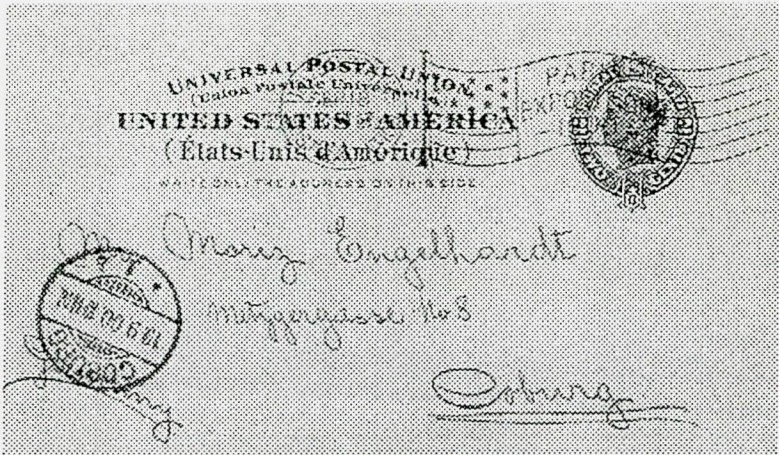 UNIVERSAL POSTAL UNION
(Union Postale Universelle)
UNITED STATES OF AMERICA
(États-Unis d'Amérique)
WRITE ONLY THE ADDRESS ON THIS SIDE
PARIS
EXPOSITION
M Moriz Engelhardt
Metzgergasse No 8
Coburg
Germany
COBURG
13 9 00